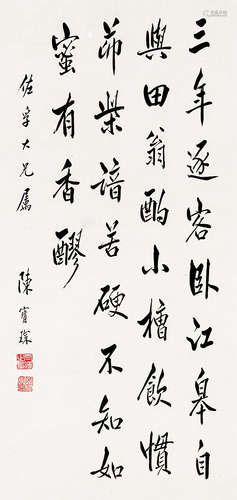 三年逐客卧江皋自
與田翁酌小槽飲慣
茆柴諳苦硬不知如
蜜有香醪
佐孚大兄屬
陳寶琛